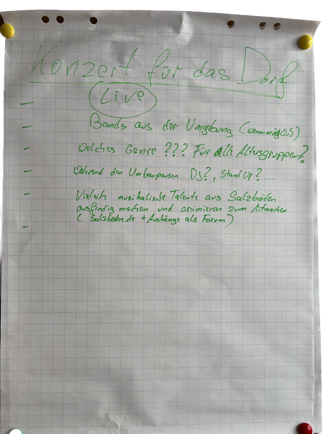 Konzert für das Dorf
Live
– Bands aus der Umgebung
– Welches Genre ??? Für alle Altersgruppen?
– Während den Umbaupausen DJ?, Stand Up?...
– Vielleicht musikalische Talente aus Salzböden
ausfindig machen und animieren zum Mitmachen
– (Salzböden.de + Aushänge als Forum)